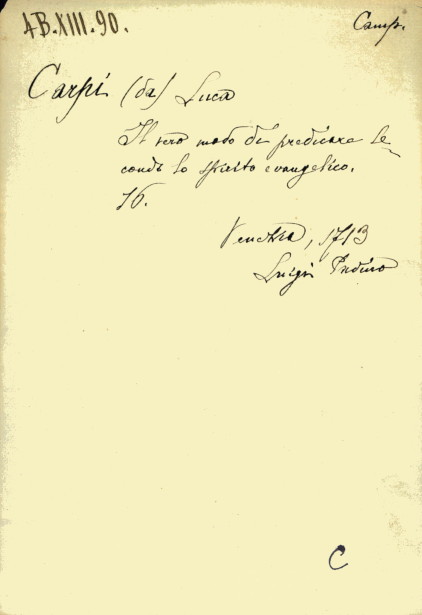 4B.XIII.90.
Camp.
Carpi (da) Luca
Il vero modo di predicare se-
condo lo spirito evangelico.
16.
Venezia, 1713
Luigi
C